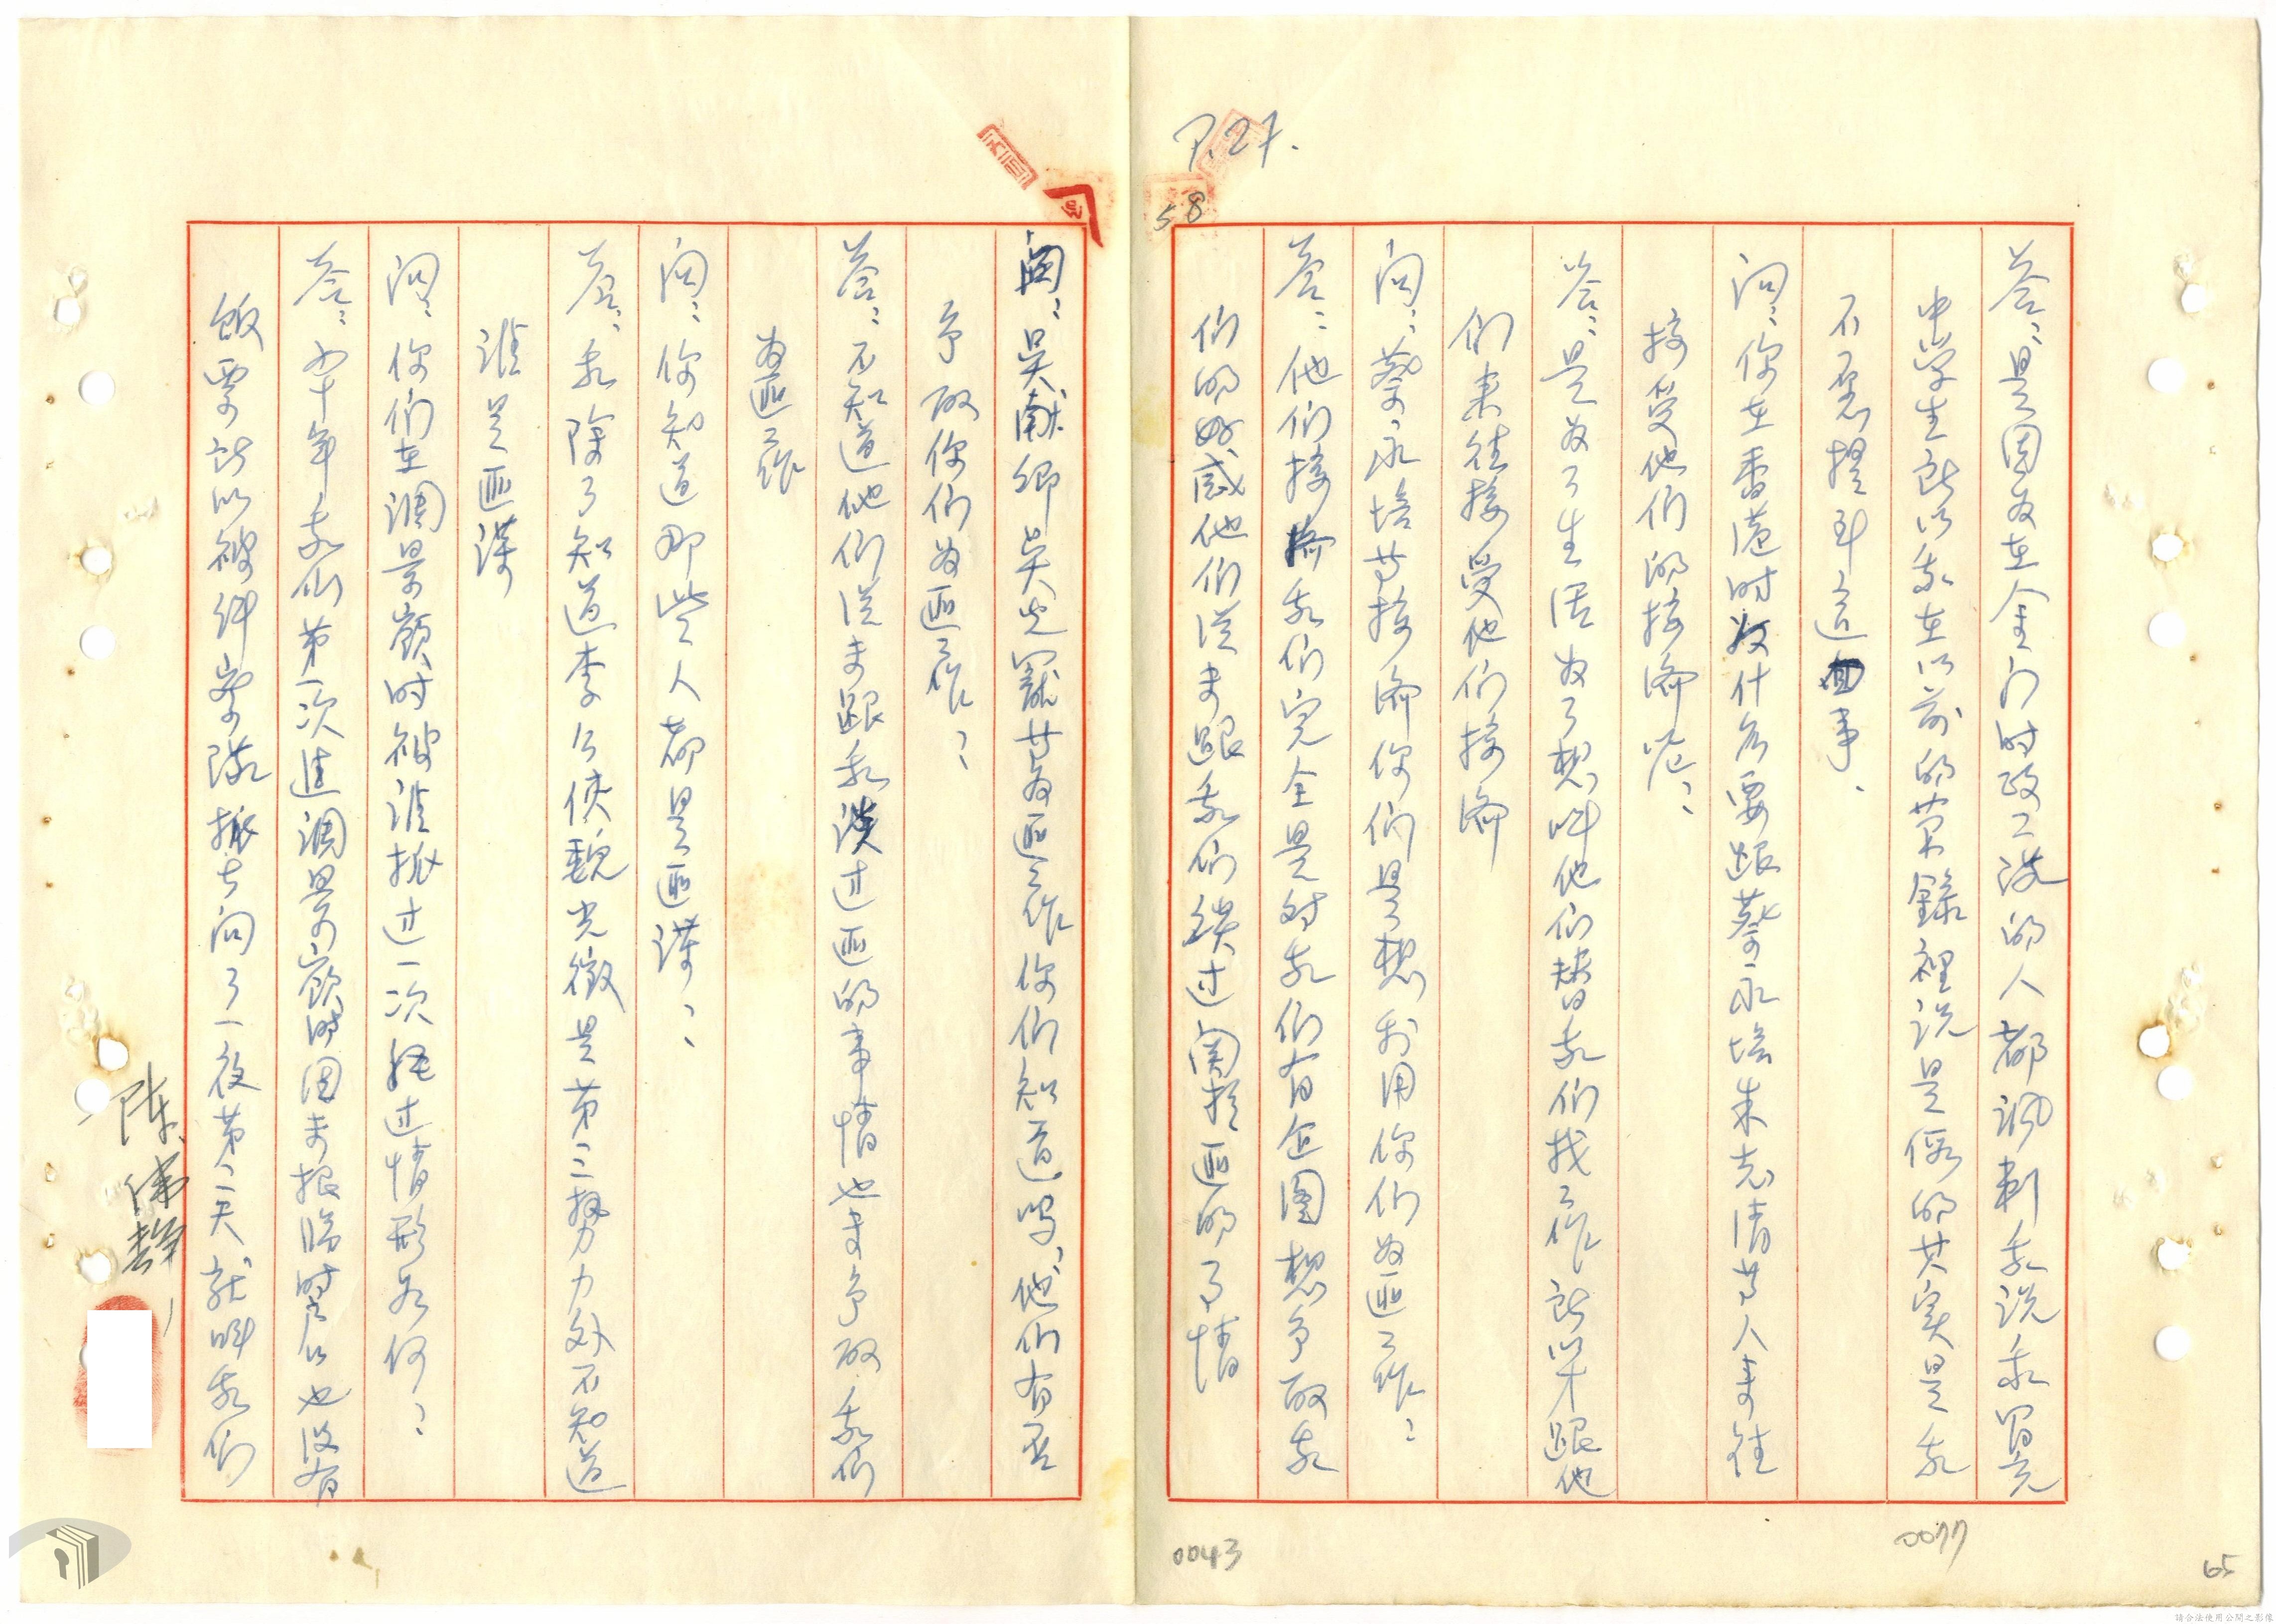 P.27.
58
答：是因为在金门时政工隊的人都諷刺我说我冒充
中学生所以我在以前的荣錄裡说是假的其实是我
不愿提到这事.
问：你在香港时为什么要跟蔡永培朱志清等人来往
接受他们的接濟呢：
答：是为了生活为了想叫他们替我们找工作所以才跟他
们来往接受他们接濟
问：蔡永培等接濟你们是想利用你们为匪工作：
答：他们接濟我们完全是对我们有企圖想争取我
们的好感他们從来跟我们談过関於匪的了情
问：吴献卿吴光 等为匪工作你们知道嗎、他们有否
争取你们为匪工作：
答：不知道他们從未跟我談过匪的事情也未争取我们
为匪工作
问：你知道那些人都是匪諜：
答：我除了知道李公侠魏光徵是第三势力外不知道
誰是匪諜
问：你们在调景嶺时被誰抓过一次经过情形如何：
答：四十年我们第一次進调景嶺时因未报臨时户口也没有
飯票所以被纠察隊抓去问了一夜第二天就叫我们
陈偉
0043
0077
65
請合法使用公開之影像